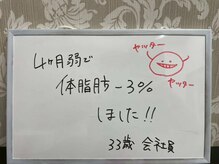 4ヶ月弱で
体脂肪-3%
しました!!
33歳 会社員
ヤッター
ヤッター